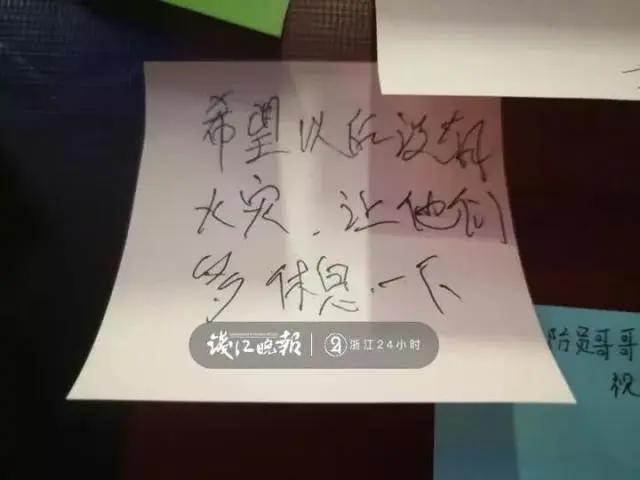 希望以后没有
火灾，让他们
多休息一下
钱江晚报 浙江24小时
员哥哥
祝